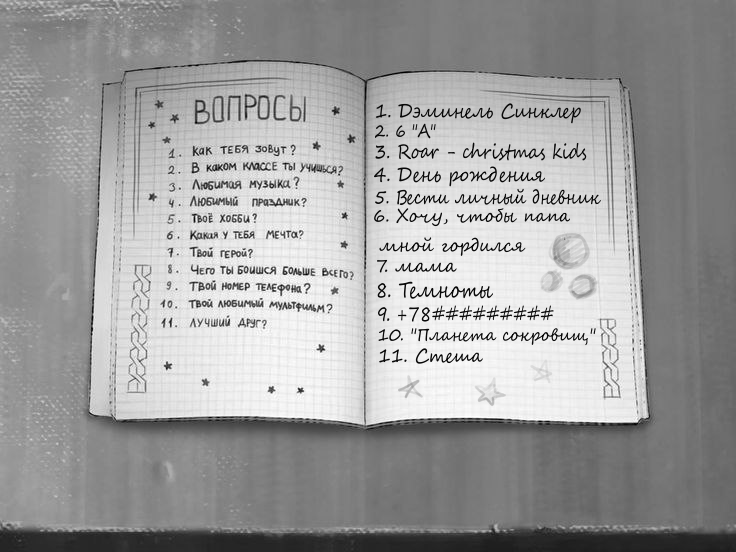 ВОПРОСЫ
1. КАК ТЕБЯ ЗОВУТ?
2. В КАКОМ КЛАССЕ ТЫ УЧИШЬСЯ?
3. ЛЮБИМАЯ МУЗЫКА?
4. ЛЮБИМЫЙ ПРАЗДНИК?
5. ТВОЁ ХОББИ?
6. КАКАЯ У ТЕБЯ МЕЧТА?
7. ТВОЙ ГЕРОЙ?
8. ЧЕГО ТЫ БОИШСЯ БОЛЬШЕ ВСЕГО?
9. ТВОЙ НОМЕР ТЕЛЕФОНА?
10. ТВОЙ ЛЮБИМЫЙ МУЛЬТФИЛЬМ?
11. ЛУЧШИЙ ДРУГ?
1. Дэминель Синклер
2. 6 "А"
3. Roar - christmas kids
4. День рождения
5. Вести личный дневник
6. Хочу, чтобы папа
мной гордился
7. мама
8. Темноты
9. +78#########
10. "Планета сокровищ"
11. Стеша